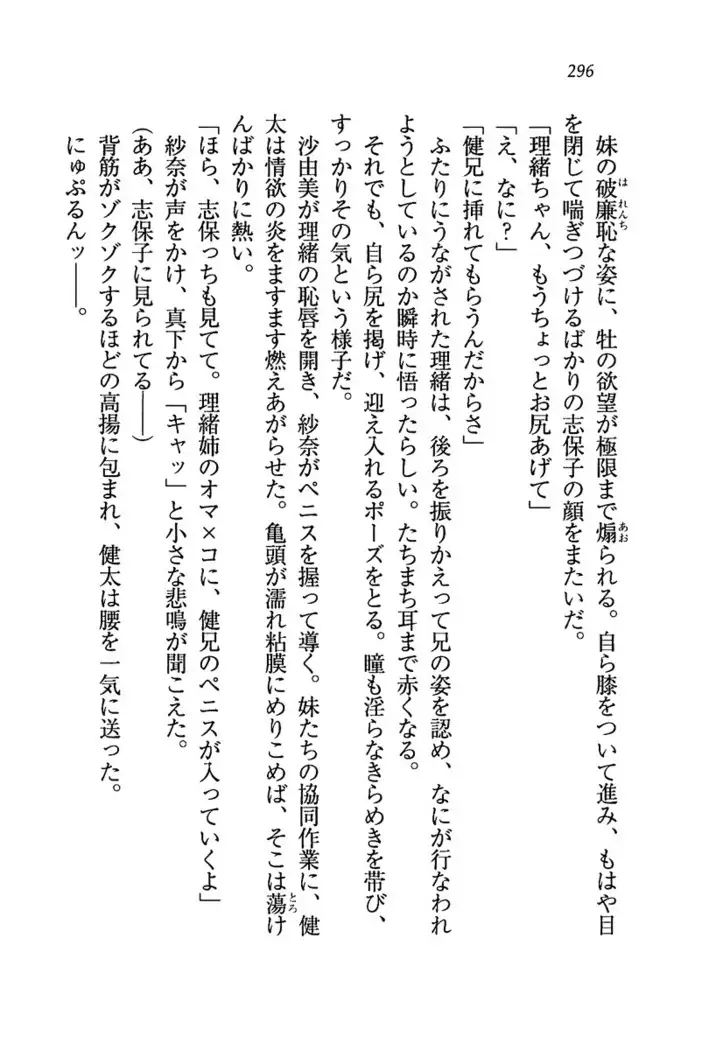 296
妹の破廉恥な姿に、牡の欲望が極限まで煽られる。自ら膝をついて進み、もはや目
を閉じて喘ぎつづけるばかりの志保子の顔をまたいだ。
「理緒ちゃん、もうちょっとお尻あげて」
「え、なに？」
「健兄に挿れてもらうんだからさ」
ふたりにうながされた理緒は、後ろを振りかえって兄の姿を認め、なにが行なわれ
ようとしているのか瞬時に悟ったらしい。たちまち耳まで赤くなる。
それでも、自ら尻を掲げ、迎え入れるポーズをとる。瞳も淫らなきらめきを帯び、
すっかりその気という様子だ。
沙由美が理緒の恥唇を開き、紗奈がペニスを握って導く。妹たちの協同作業に、健
太は情欲の炎をますます燃えあがらせた。亀頭が濡れ粘膜にめりこめば、そこは蕩け
んばかりに熱い。
「ほら、志保っちも見てて。理緒姉のオマ×コに、健兄のペニスが入っていくよ」
紗奈が声をかけ、真下から「キャッ」と小さな悲鳴が聞こえた。
(ああ、志保子に見られてる——)
背筋がゾクゾクするほどの高揚に包まれ、健太は腰を一気に送った。
にゅぷるんッ——。